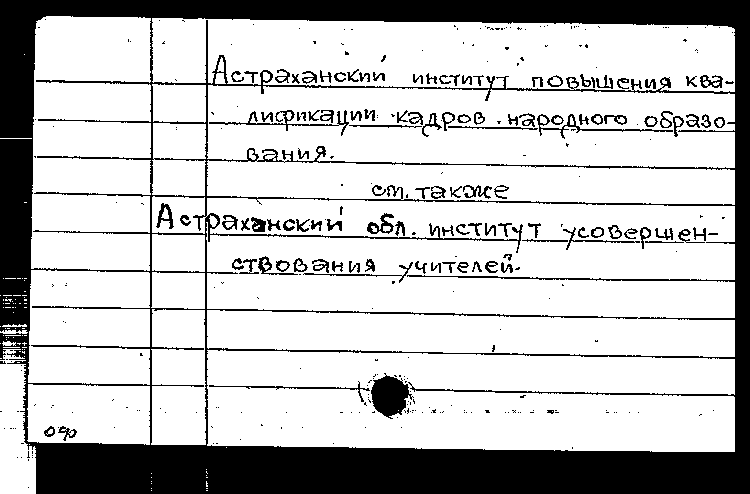 Астраханский институт повышения ква-
лификации кадров народного образо-
вания.
см. также
Астраханский обл. институт усовершен-
ствования учителей.